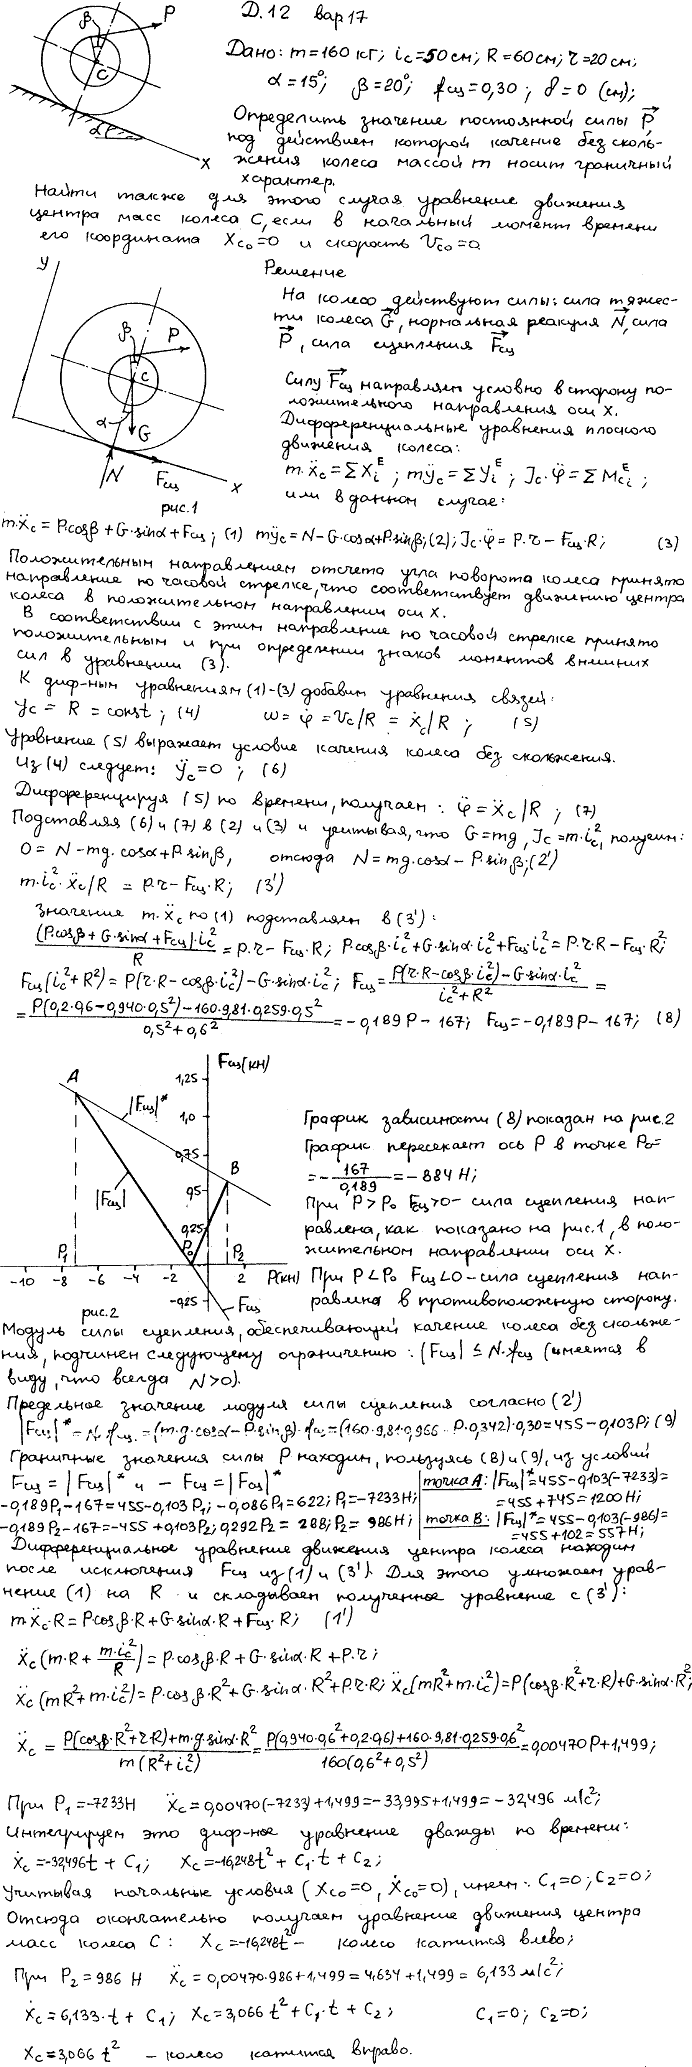 Д.12 вар 17
β P
C
α
x
Дано: m=160 кг; i_c=50 см; R=60 см; r=20 см;
α=15°; β=20°; f_сц=0,30; δ=0 (см);
Определить значение постоянной силы P⃗,
под действием которой качение без сколь-
жения колеса массой m носит граничный
характер.
Найти также для этого случая уравнение движения
центра масс колеса C, если в начальный момент времени
его координата X_C0=0 и скорость V_C0=0.
Решение
y
β P
C
α
G
N F_сц x
рис.1
На колесо действуют силы: сила тяжес-
ти колеса G⃗, нормальная реакция N⃗, сила
P⃗, сила сцепления F⃗_сц
Силу F⃗_сц направляем условно в сторону по-
ложительного направления оси X.
Дифференциальные уравнения плоского
движения колеса:
m·ẍ_c = ΣX_i^E; mÿ_c = ΣY_i^E; J_c·φ̈ = ΣM_ci^E;
или в данном случае:
m·ẍ_c = P·cosβ + G·sinα + F_сц; (1) mÿ_c = N-G·cosα+P·sinβ; (2); J_c·φ̈ = P·r - F_сц·R; (3)
Положительным направлением отсчета угла поворота колеса принято
направление по часовой стрелке, что соответствует движению центра
колеса в положительном направлении оси X.
В соответствии с этим направление по часовой стрелке принято
положительным и при определении знаков моментов внешних
сил в уравнении (3).
К диф-ным уравнениям (1)-(3) добавим уравнения связей:
y_c = R = const; (4) ω = φ̇ = V_c/R = ẋ_c/R; (5)
Уравнение (5) выражает условие качения колеса без скольжения.
Из (4) следует: ÿ_c=0; (6)
Дифференцируя (5) по времени, получаем: φ̈ = ẍ_c/R; (7)
Подставляя (6) и (7) в (2) и (3) и учитывая, что G=mg, J_c=m·i_c², получим:
0 = N-mg·cosα+P·sinβ, отсюда N=mg·cosα-P·sinβ; (2')
m·i_c²·ẍ_c/R = P·r-F_сц·R; (3')
Значение m·ẍ_c по (1) подставляем в (3'):
(P·cosβ+G·sinα+F_сц)·i_c²/R = P·r-F_сц·R; P·cosβ·i_c²+G·sinα·i_c²+F_сц·i_c²=P·r·R-F_сц·R²;
F_сц(i_c²+R²)=P(r·R-cosβ·i_c²)-G·sinα·i_c²; F_сц=(P(r·R-cosβ·i_c²)-G·sinα·i_c²)/(i_c²+R²)=
=(P(0,2·0,6-0,940·0,5²)-160·9,81·0,259·0,5²)/(0,5²+0,6²)=-0,189P-167; F_сц=-0,189P-167; (8)
F_сц(кН)
A
1,25
|F_сц|*
1,0
0,75
B
|F_сц|
0,5
0,25
P₁ P₀ P₂
-10 -8 -6 -4 -2 2 P(кН)
-0,25 F_сц
рис.2
График зависимости (8) показан на рис.2
График пересекает ось P в точке P₀=
=-167/0,189=-884 Н;
При P>P₀ F_сц>0-сила сцепления нап-
равлена, как показано на рис.1, в поло-
жительном направлении оси X.
При P<P₀ F_сц<0-сила сцепления нап-
равлена в противоположную сторону.
Модуль силы сцепления, обеспечивающей качение колеса без скольже-
ния, подчинен следующему ограничению: |F_сц| ≤ N·f_сц (имеется в
виду, что всегда N>0).
Предельное значение модуля силы сцепления согласно (2')
|F_сц|*=N·f_сц=(m·g·cosα-P·sinβ)·f_сц=(160·9,81·0,966-P·0,342)·0,30=455-0,103P; (9)
Граничные значения силы P находим, пользуясь (8) и (9), из условий
F_сц = |F_сц|* и -F_сц=|F_сц|*
-0,189P₁-167=455-0,103P₁; -0,086P₁=622; P₁=-7233Н;
-0,189P₂-167=-455+0,103P₂; 0,292P₂=288; P₂=986Н;
точка А: |F_сц|*=455-0,103(-7233)=
=455+745=1200Н;
точка В: |F_сц|*=455-0,103(-986)=
=455+102=557Н;
Дифференциальное уравнение движения центра колеса находим
после исключения F_сц из (1) и (3'). Для этого умножаем урав-
нение (1) на R и складываем полученное уравнение с (3'):
m·ẍ_c·R=P·cosβ·R+G·sinα·R+F_сц·R; (1')
ẍ_c(m·R+m·i_c²/R)=P·cosβ·R+G·sinα·R+P·r;
ẍ_c(mR²+m·i_c²)=P·cosβ·R²+G·sinα·R²+P·r·R; ẍ_c(mR²+m·i_c²)=P(cosβ·R²+r·R)+G·sinα·R²;
ẍ_c=(P(cosβ·R²+r·R)+m·g·sinα·R²)/(m(R²+i_c²))=(P(0,940·0,6²+0,2·0,6)+160·9,81·0,259·0,6²)/(160(0,6²+0,5²))=0,00470P+1,499;
При P₁=-7233Н ẍ_c=0,00470(-7233)+1,499=-33,995+1,499=-32,496 м/с²;
Интегрируем это диф-ное уравнение дважды по времени:
ẋ_c=-32,496t+C₁; x_c=-16,248t²+C₁·t+C₂;
Учитывая начальные условия (X_C0=0, Ẋ_C0=0), имеем: C₁=0; C₂=0;
Отсюда окончательно получаем уравнение движения центра
масс колеса C: X_c=-16,248t² - колесо катится влево;
При P₂=986 Н ẍ_c=0,00470·986+1,499=4,634+1,499=6,133 м/с²;
ẋ_c=6,133·t+C₁; x_c=3,066t²+C₁·t+C₂; C₁=0; C₂=0;
X_c=3,066t² - колесо катится вправо.